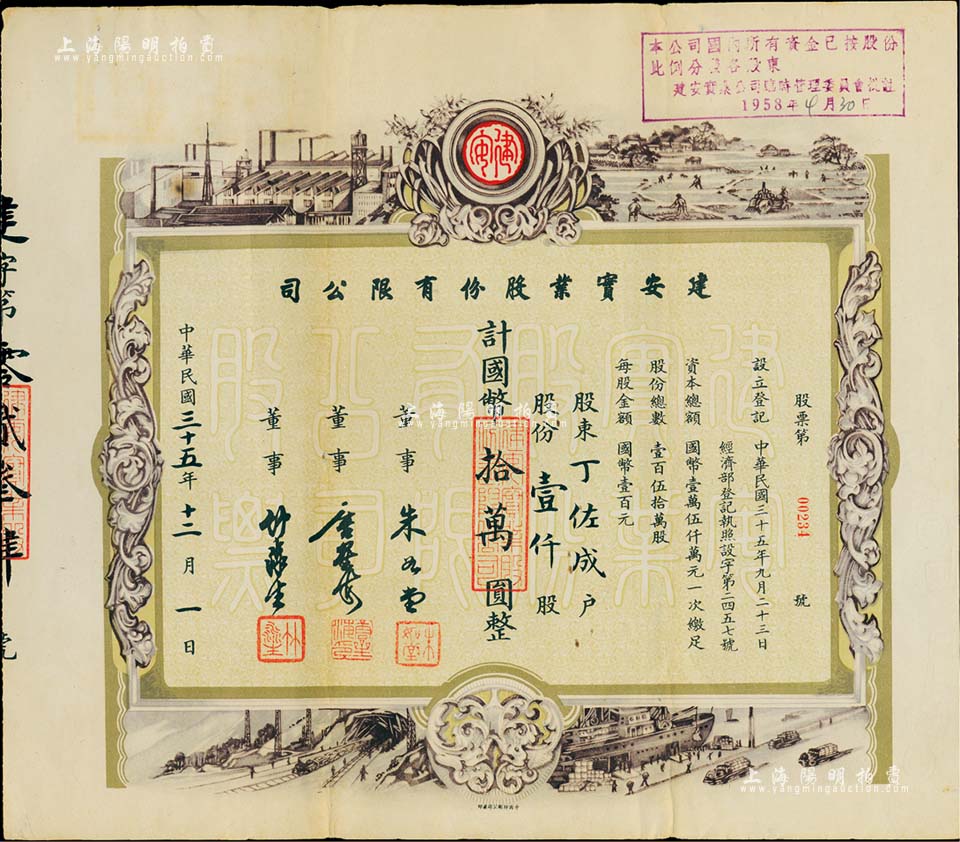 上海陽明拍賣
www.yangmingauction.com
本公司國內所有資金已按股份
比例分還各股東
建安實業公司臨時管理委員會批註
1958年4月30日
建安
建安實業股份有限公司
股票第 00234 號
設立登記 中華民國三十五年九月二十三日
經濟部登記執照設字第二四五七號
資本總額 國幣壹萬伍仟萬元一次繳足
股份總數 壹百伍拾萬股
每股金額 國幣壹百元
股東丁佐成戶
股份壹仟股
計國幣拾萬圓整
董事 朱如堂
董事
董事
中華民國三十五年十二月一日
建字第零貳叁肆號
上海陽明拍賣
www.yangmingauction.com
上海陽明拍賣
www.yangmingauction.com
上海陽明拍賣
www.yangmingauction.com